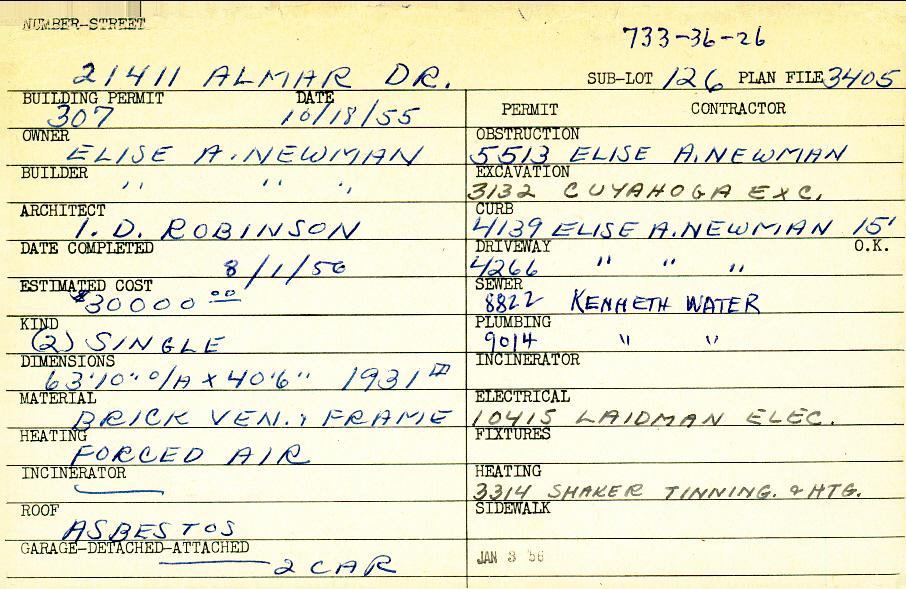 NUMBER-STREET
733-36-26
21411 ALMAR DR.
SUB-LOT 126 PLAN FILE 3405
BUILDING PERMIT DATE
307 10/18/55
PERMIT CONTRACTOR
OWNER
ELISE A. NEWMAN
OBSTRUCTION
5513 ELISE A. NEWMAN
BUILDER
" " "
EXCAVATION
3132 CUYAHOGA EXC.
ARCHITECT
I. D. ROBINSON
CURB
4139 ELISE A. NEWMAN 15'
DATE COMPLETED
8/1/56
DRIVEWAY O.K.
4266 " " "
ESTIMATED COST
$30000 00
SEWER
8822 KENNETH WATER
KIND
(2) SINGLE
PLUMBING
9014 " "
DIMENSIONS
63'10" O/A X 40'6" 1931
INCINERATOR
MATERIAL
BRICK VEN. & FRAME
ELECTRICAL
10415 LAIDMAN ELEC.
HEATING
FORCED AIR
FIXTURES
INCINERATOR
HEATING
3314 SHAKER TINNING. & HTG.
ROOF
ASBESTOS
SIDEWALK
GARAGE-DETACHED-ATTACHED
2 CAR
JAN 3 '56